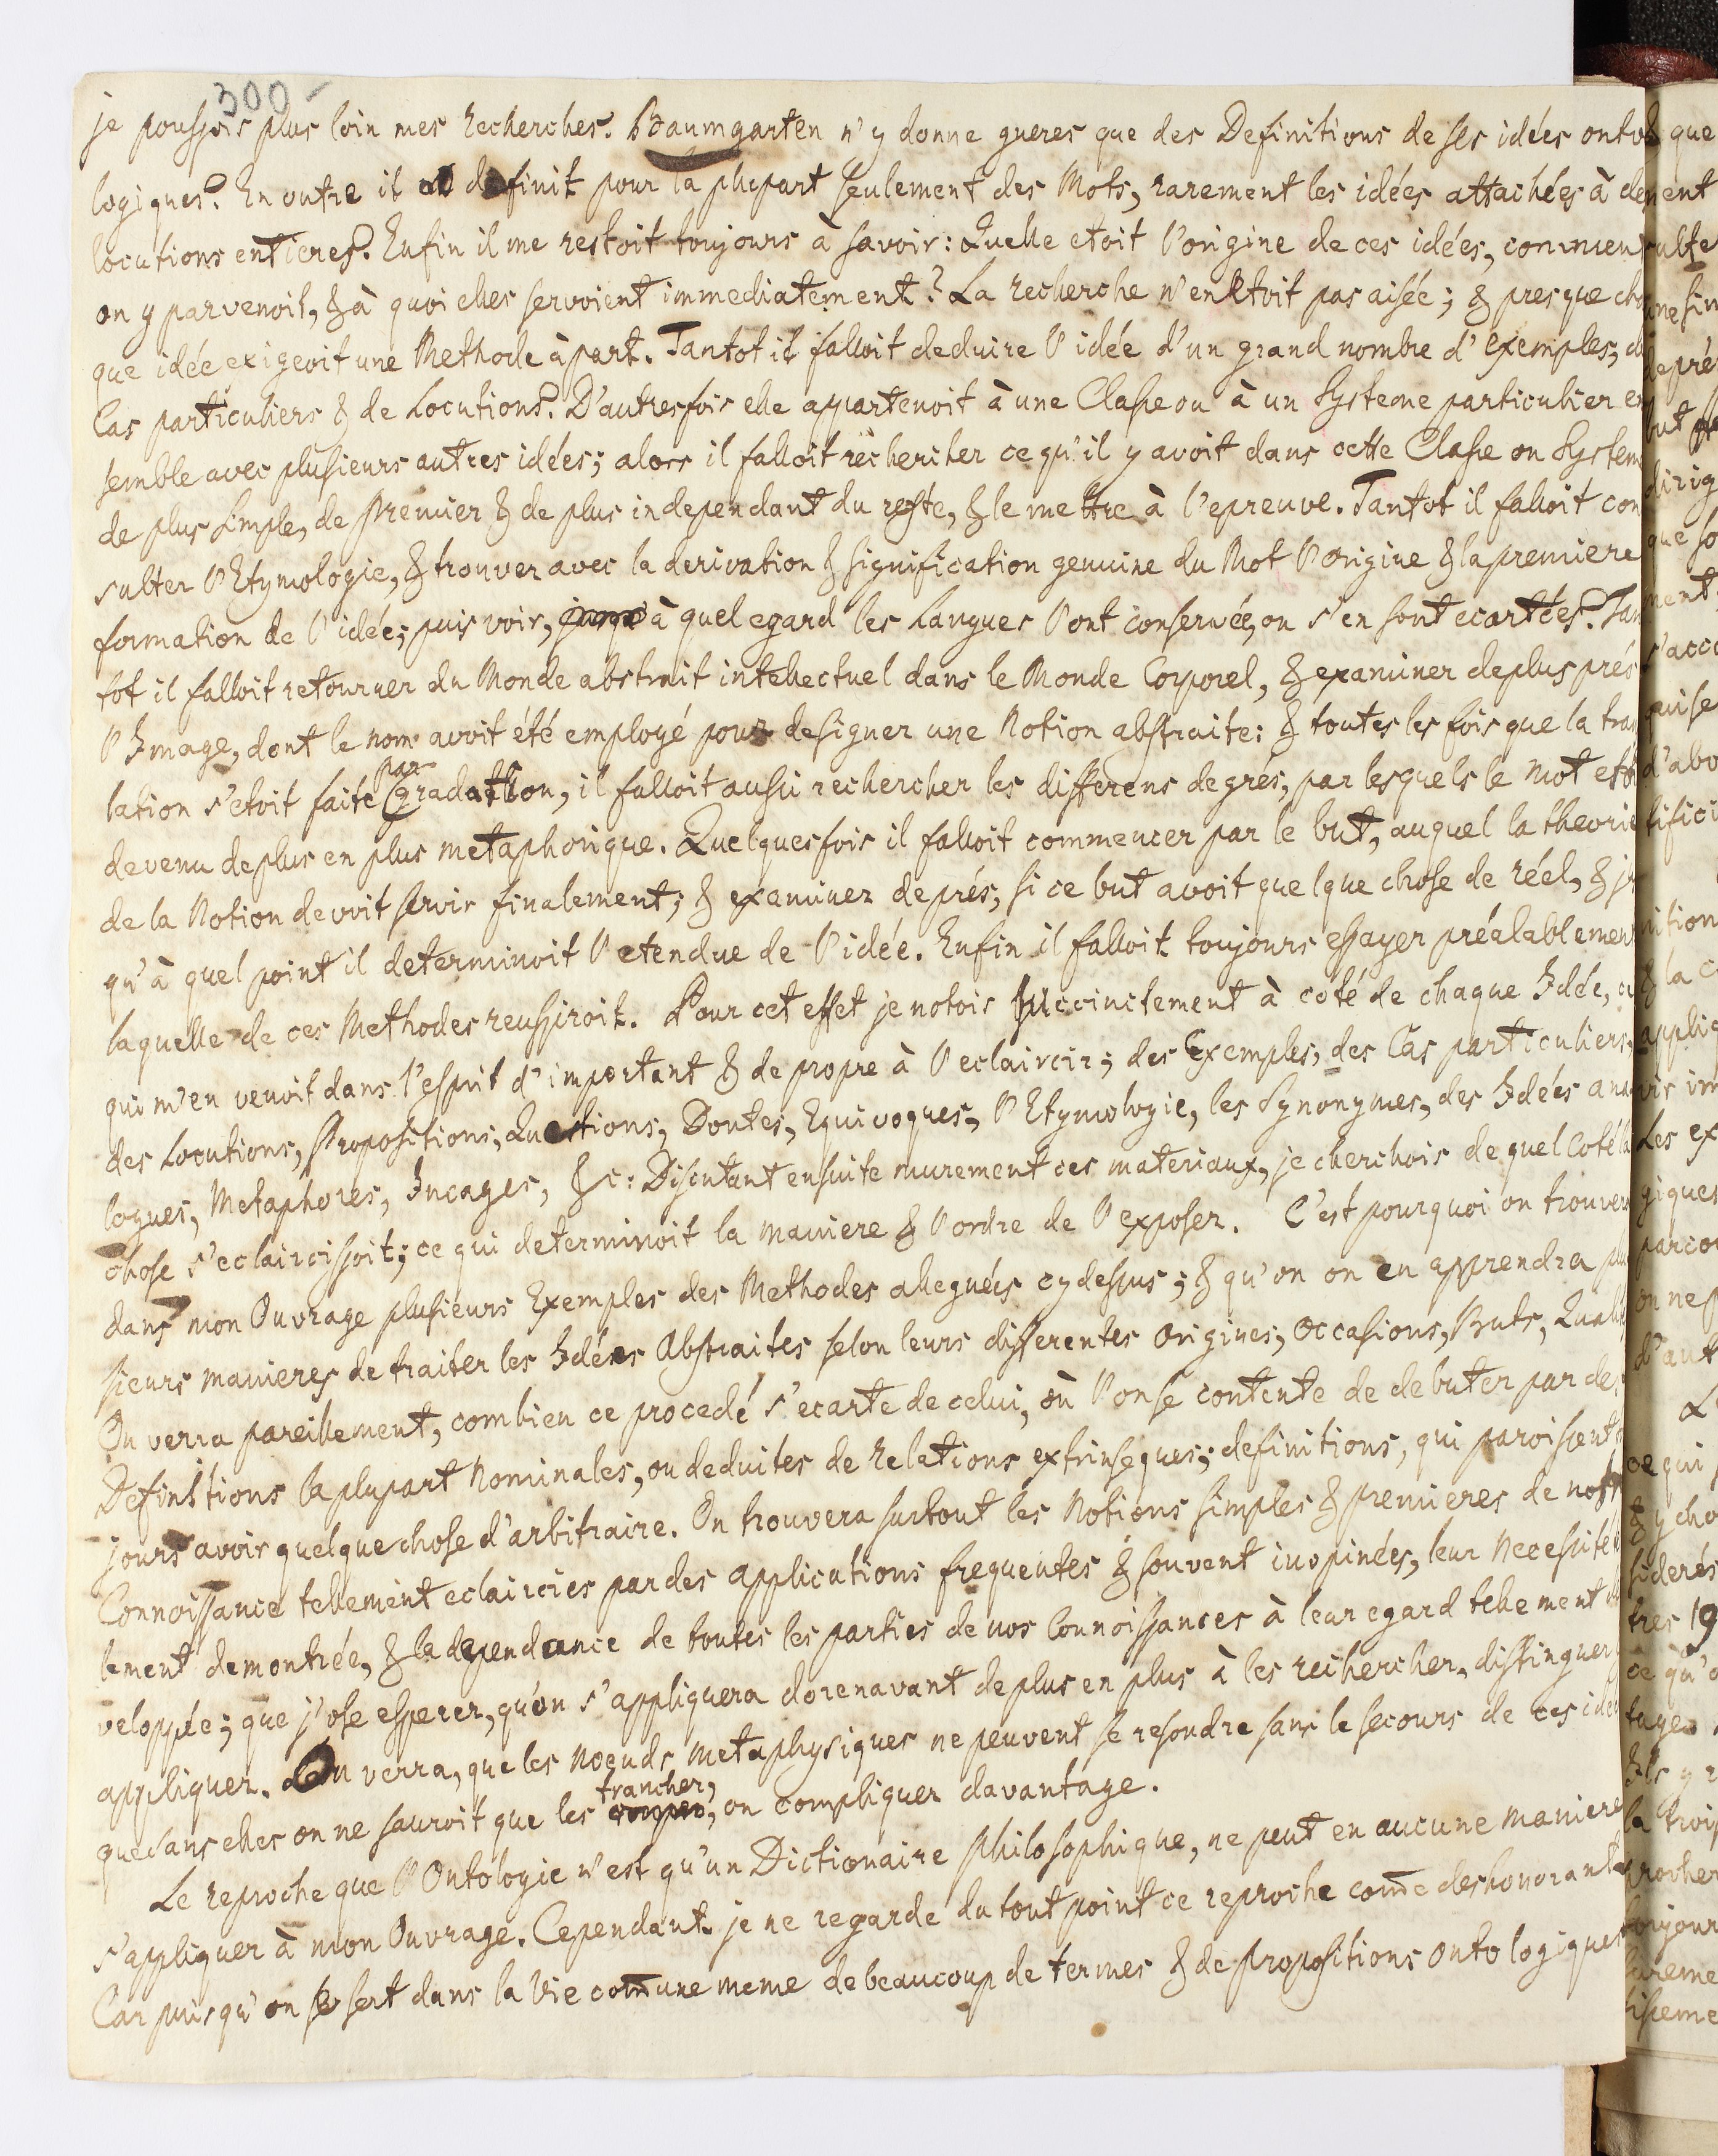 300
je poussois plus loin mes recherches. Baumgarten n'y donne gueres que des Definitions de ses idées onto
logiques. En outre il definit pour la plupart seulement des Mots, rarement les idées attachées à de
locutions entieres. Enfin il me restoit toujours à savoir: Quelle etoit l'origine de ces idées, commen
on y parvenoit, & à quoi elles servoient immediatement? La recherche n'en etoit pas aisée; & presque cha
que idée exigeoit une Methode à part. Tantot il falloit deduire l'idée d'un grand nombre d'Exemples, de
Cas particuliers & de Locutions. D'autresfois elle appartenoit à une Classe ou à un Systeme particulier en
semble avec plusieurs autres idées; alors il falloit rechercher ce qu'il y avoit dans cette Classe ou System
de plus simple, de premier & de plus independant du reste, & le mettre à l'epreuve. Tantot il falloit con
sulter l'Etymologie, & trouver avec la derivation & signification genuine du Mot l'origine & la premiere
formation de l'idée; puis voir, à quel egard les Langues l'ont conservée, ou s'en sont ecartées. Tan
tot il falloit retourner du Monde abstrait intellectuel dans le Monde Corporel, & examiner de plus prés
l'Image, dont le nom avoit été employé pour designer une Notion abstraite: & toutes les fois que la tran
lation s'etoit faite par gradation, il falloit aussi rechercher les differens degrés, par lesquels le Mot etoi
devenu de plus en plus metaphorique. Quelquesfois il falloit commencer par le but, auquel la theorie
de la Notion devoit servir finalement; & examiner de prés, si ce but avoit quelque chose de réel, & jus
qu'à quel point il determinoit l'etendue de l'idée. Enfin il falloit toujours essayer préalablement
laquelle de ces Methodes reussiroit. Pour cet effet je notois succinctement à coté de chaque Idée, ce
qui m'en venoit dans l'esprit d'important & de propre à l'eclaircir; des Exemples, des Cas particuliers,
des Locutions, Propositions, Questions, Doutes, Equivoques, l'Etymologie, les Synonymes, des Idées ana
logues, Metaphores, Images, &c: Discutant ensuite murement ces materiaux, je cherchois de quel coté la
chose s'eclaircissoit; ce qui determinoit la maniere & l'ordre de l'exposer. C'est pourquoi on trouvera
dans mon Ouvrage plusieurs Exemples des Methodes alleguées cy dessus; & qu'on on en apprendra plu
sieurs manieres de traiter les Idées Abstraites selon leurs differentes Origines, Occasions, Buts, Qualit
On verra pareillement, combien ce procedé s'ecarte de celui, où l'on se contente de debuter par des
Definitions la plupart Nominales, ou deduites de relations extrinseques; definitions, qui paroissent to
jours avoir quelque chose d'arbitraire. On trouvera surtout les Notions simples & premieres de notre
Connoissance tellement eclaircies par des applications frequentes & souvent inopinées, leur Necessité
lement demontrée, & la dependance de toutes les parties de nos Connoissances à leur egard tellement de
veloppée; que j'ose esperer, qu'on s'appliquera dorenavant de plus en plus à les rechercher, distinguer
appliquer. On verra, que les noeuds metaphysiques ne peuvent se resoudre sans le secours de ces idées
que sans elles on ne sauroit que les trancher, ou compliquer davantage.
Le reproche que l'Ontologie n'est qu'un Dictionaire philosophique, ne peut en aucune maniere
s'appliquer à mon Ouvrage. Cependant je ne regarde du tout point ce reproche com̄e deshonorant.
Car puisqu'on se sert dans la Vie com̄une meme de beaucoup de termes & de propositions Ontologiques